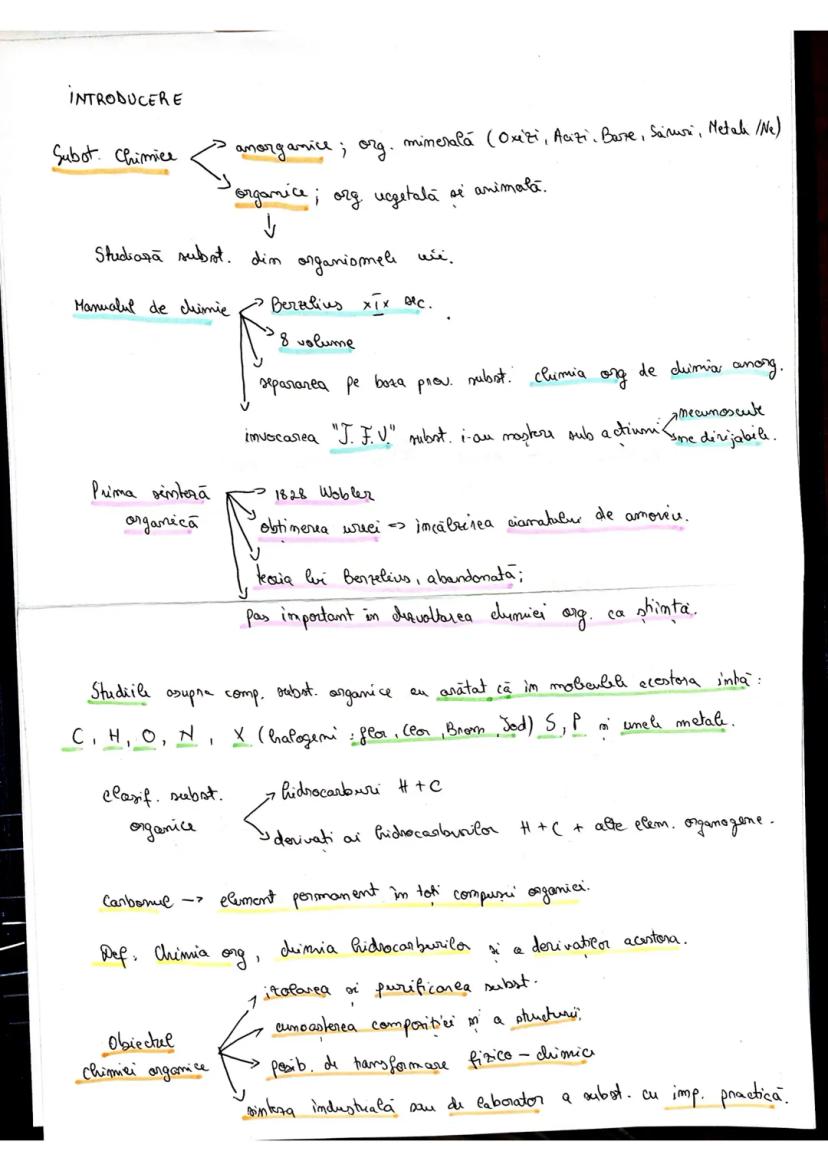 INTRODUCERE
Subst. Chimice
anorganice; org. minerală (Oxizi, Acizi, Baze, Săruri, Metale /Ne)
organice; org. vegetală și animală.
Studiază subst. din organismele vii.
Manualul de chimie
Berzelius XIX sec.
8 volume
separarea pe baza prov. subst. chimia org de chimia anorg.
invocarea "T.F.V." subst. i-au naștere sub acțiuni
necunoscute
ne dirijabile.
Prima sinteză
organică
1828 Wöbler
obținerea ureei => încălzirea cianatului de amoniu.
teoria lui Berzelius, abandonată;
pas important în dezvoltarea chimiei org. ca știință.
Studiile asupra comp. subst. organice au arătat că în moleculele acestora intră:
C, H, O, N, X (halogeni: flor, Clor, Brom, Iod) S, P și unele metale.
clasif. subst.
organice
hidrocarburi H + C
derivați ai hidrocarburilor H + C + alte elem. organogene.
Carbonul -> element permanent în toți compușii organici.
Def. Chimia org, chimia hidrocarburilor și a derivaților acestora.
Obiectul
chimiei organice
izolarea și purificarea subst.
cunoașterea compoziției și a structurii.
posib. de transformare fizico-chimice
sinteza industrială sau de laborator a subst. cu imp. practică.